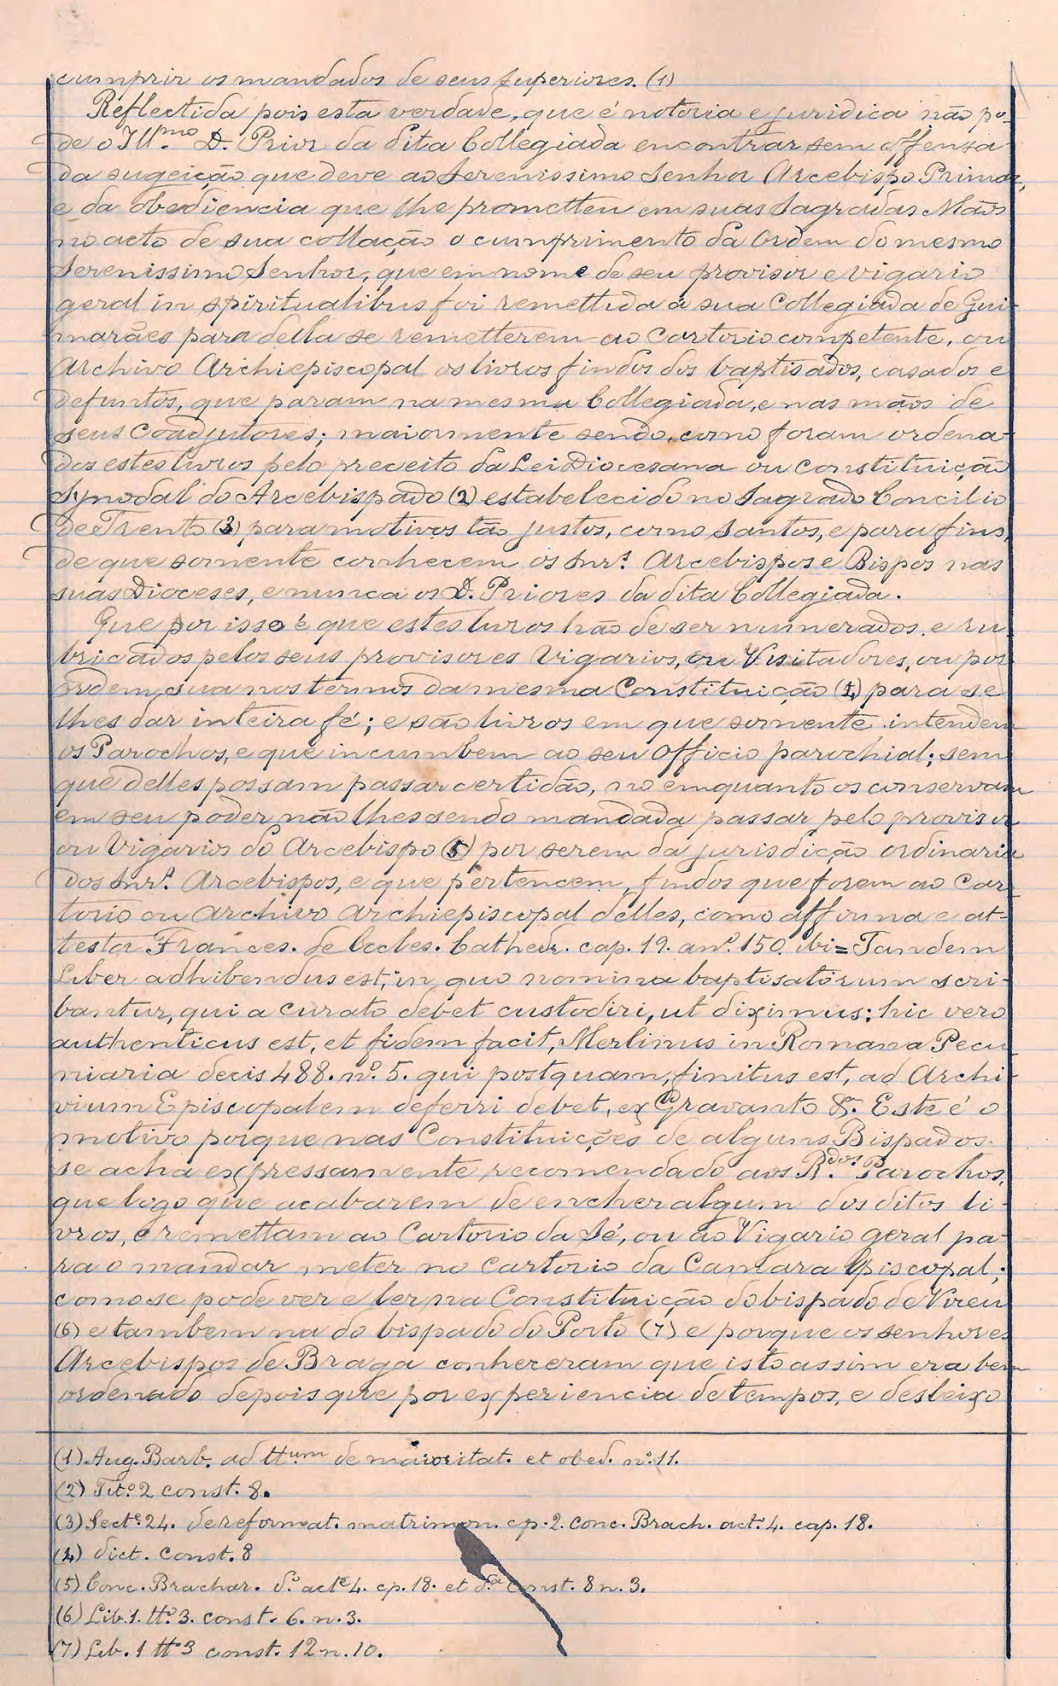 cumprir os mandados de seus superiores. (1)
Reflectida pois esta verdade, que é notoria e juridica não po-
de o Ill.mo D. Prior da dita Collegiada encontrar sem offensa
da sugeição que deve ao Serenissimo Senhor Arcebispo Primaz,
e da obediencia que lhe prometteu em suas Sagradas Mãos
no acto de sua collação o cumprimento da Ordem do mesmo
Serenissimo Senhor, que em nome de seu provisor e vigario
geral in spiritualibus foi remettida á sua Collegiada de Gui-
marães para della se remetterem ao Cartorio competente, ou
Archivo Archiepiscopal os livros findos dos baptisados, casados e
defuntos, que param na mesma Collegiada, e nas mãos de
seus Coadjutores; maiormente sendo, como foram ordena-
dos estes livros pelo preceito da Lei Diocesana ou Constituição
Synodal do Arcebispado (2) estabelecido no Sagrado Concilio
de Trento (3) para motivos tão justos, como Santos, e para fins,
de que somente conhecem os Snr.s Arcebispos e Bispos nas
suas Dioceses, e nunca os D. Priores da dita Collegiada.
Que por isso é que estes livros hão de ser numerados e ru-
bricados pelos seus provisores Vigarios, ou Visitadores, ou por
ordem sua nos termos da mesma Constituição (4) para se
lhes dar inteira fé; e são livros em que somente intendem
os Parochos, e que incumbem ao seu Officio parochial; sem
que delles possam passar certidão, no emquanto os conservam
em seu poder não lhes sendo mandada passar pelo provisor
ou Vigario do Arcebispo (5) por serem da jurisdicção ordinaria
dos Snr.s Arcebispos, e que pertencem, findos que forem ao Car-
torio ou Archivo Archiepiscopal delles, como affirma e at-
testa Frances. de Eccles. Cathedr. cap. 19. a n.º 150. ibi = Tandem
Liber adhibendus est, in quo nomina baptisatorum scri-
bantur, qui a curato debet custodiri, ut diximus: hic vero
authenticus est, et fidem facit, Merlinus in Romana Pecu-
niaria decis 488. n.º 5. qui postquam, finitus est, ad Archi-
vium Episcopalem deferri debet, ex Gravanto &. Este é o
motivo porque nas Constituições de alguns Bispados
se acha expressamente recomendado aos R.dos Parochos,
que logo que acabarem de encher algum dos ditos li-
vros, o remettam ao Cartorio da Sé, ou ao Vigario geral pa-
ra o mandar meter no Cartorio da Camara Episcopal;
como se pode ver e ler na Constituição do bispado de Vizeu
(6) e tambem na do bispado do Porto (7) e porque os senhores
Arcebispos de Braga conheceram que isto assim era bem
ordenado depois que por experiencia de tempos, e desleixo
(1) Aug. Barb. ad tt.um de maioritat. et obed. n.º 11.
(2) Tit.º 2 const. 8.
(3) Sect.e 24. de reformat. matrimon. cp. 2. conc. Brach. act.e 4. cap. 18.
(4) dict. const. 8
(5) Conc. Brachar. d.º act.e 4. cp. 18. et d.a Const. 8 n. 3.
(6) Lib. 1. tt.º 3. const. 6. n. 3.
(7) Lib. 1 tt.º 3 const. 12 n. 10.